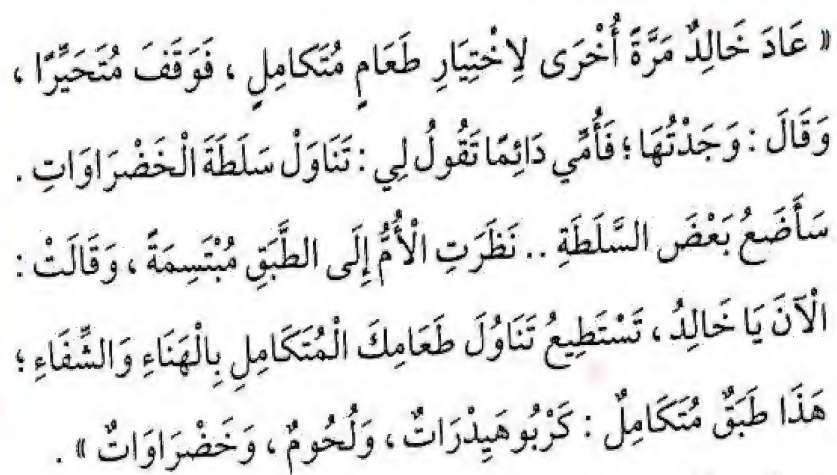 « عَادَ خَالِدٌ مَرَّةً أُخْرَى لِاخْتِيَارِ طَعَامٍ مُتَكَامِلٍ ، فَوَقَفَ مُتَحَيِّرًا ،
وَقَالَ : وَجَدْتُهَا ؛ فَأُمِّي دَائِمًا تَقُولُ لِي : تَنَاوَلْ سَلَطَةَ الْخَضْرَاوَاتِ .
سَأَضَعُ بَعْضَ السَّلَطَةِ .. نَظَرَتِ الْأُمُّ إِلَى الطَّبَقِ مُبْتَسِمَةً ، وَقَالَتْ :
الْآنَ يَا خَالِدُ ، تَسْتَطِيعُ تَنَاوُلَ طَعَامِكَ الْمُتَكَامِلِ بِالْهَنَاءِ وَالشِّفَاءِ ؛
هَذَا طَبَقٌ مُتَكَامِلٌ : كَرْبُوهَيِدْرَاتٌ ، وَلُحُومٌ ، وَخَضْرَاوَاتٌ » .